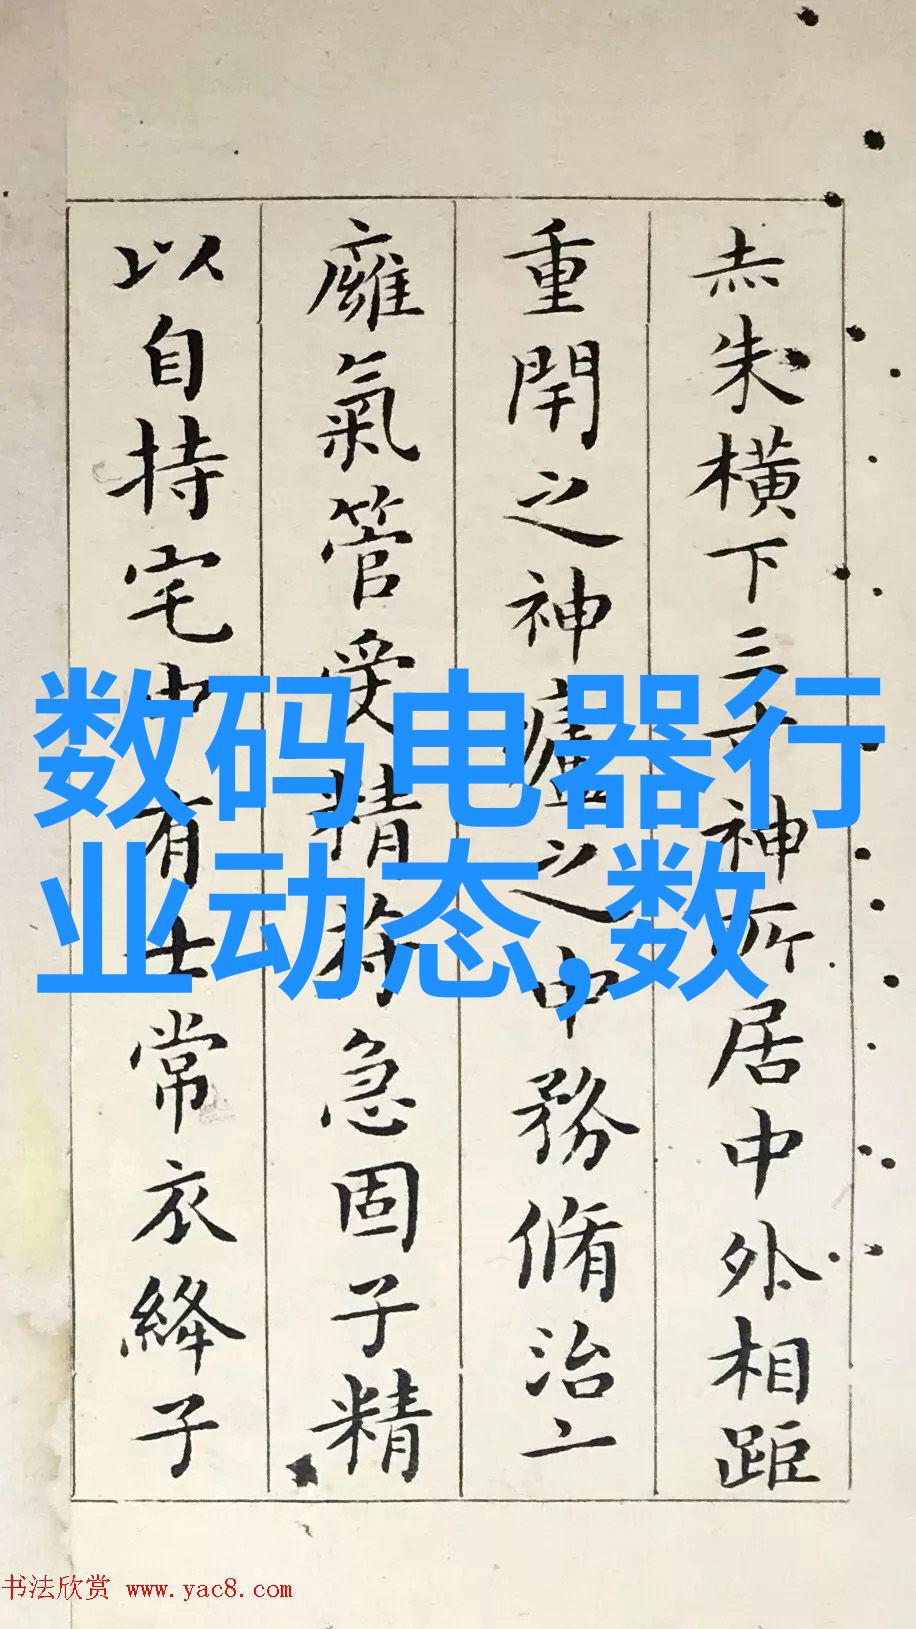 赤朱橫下三寸神所居中外相距
重閇之神廬之中務脩治二
廱氣管受精符急固子精
以自持宅中有士常衣絳子
数码电器行
业动态,数
书法欣赏 www.yac8.com